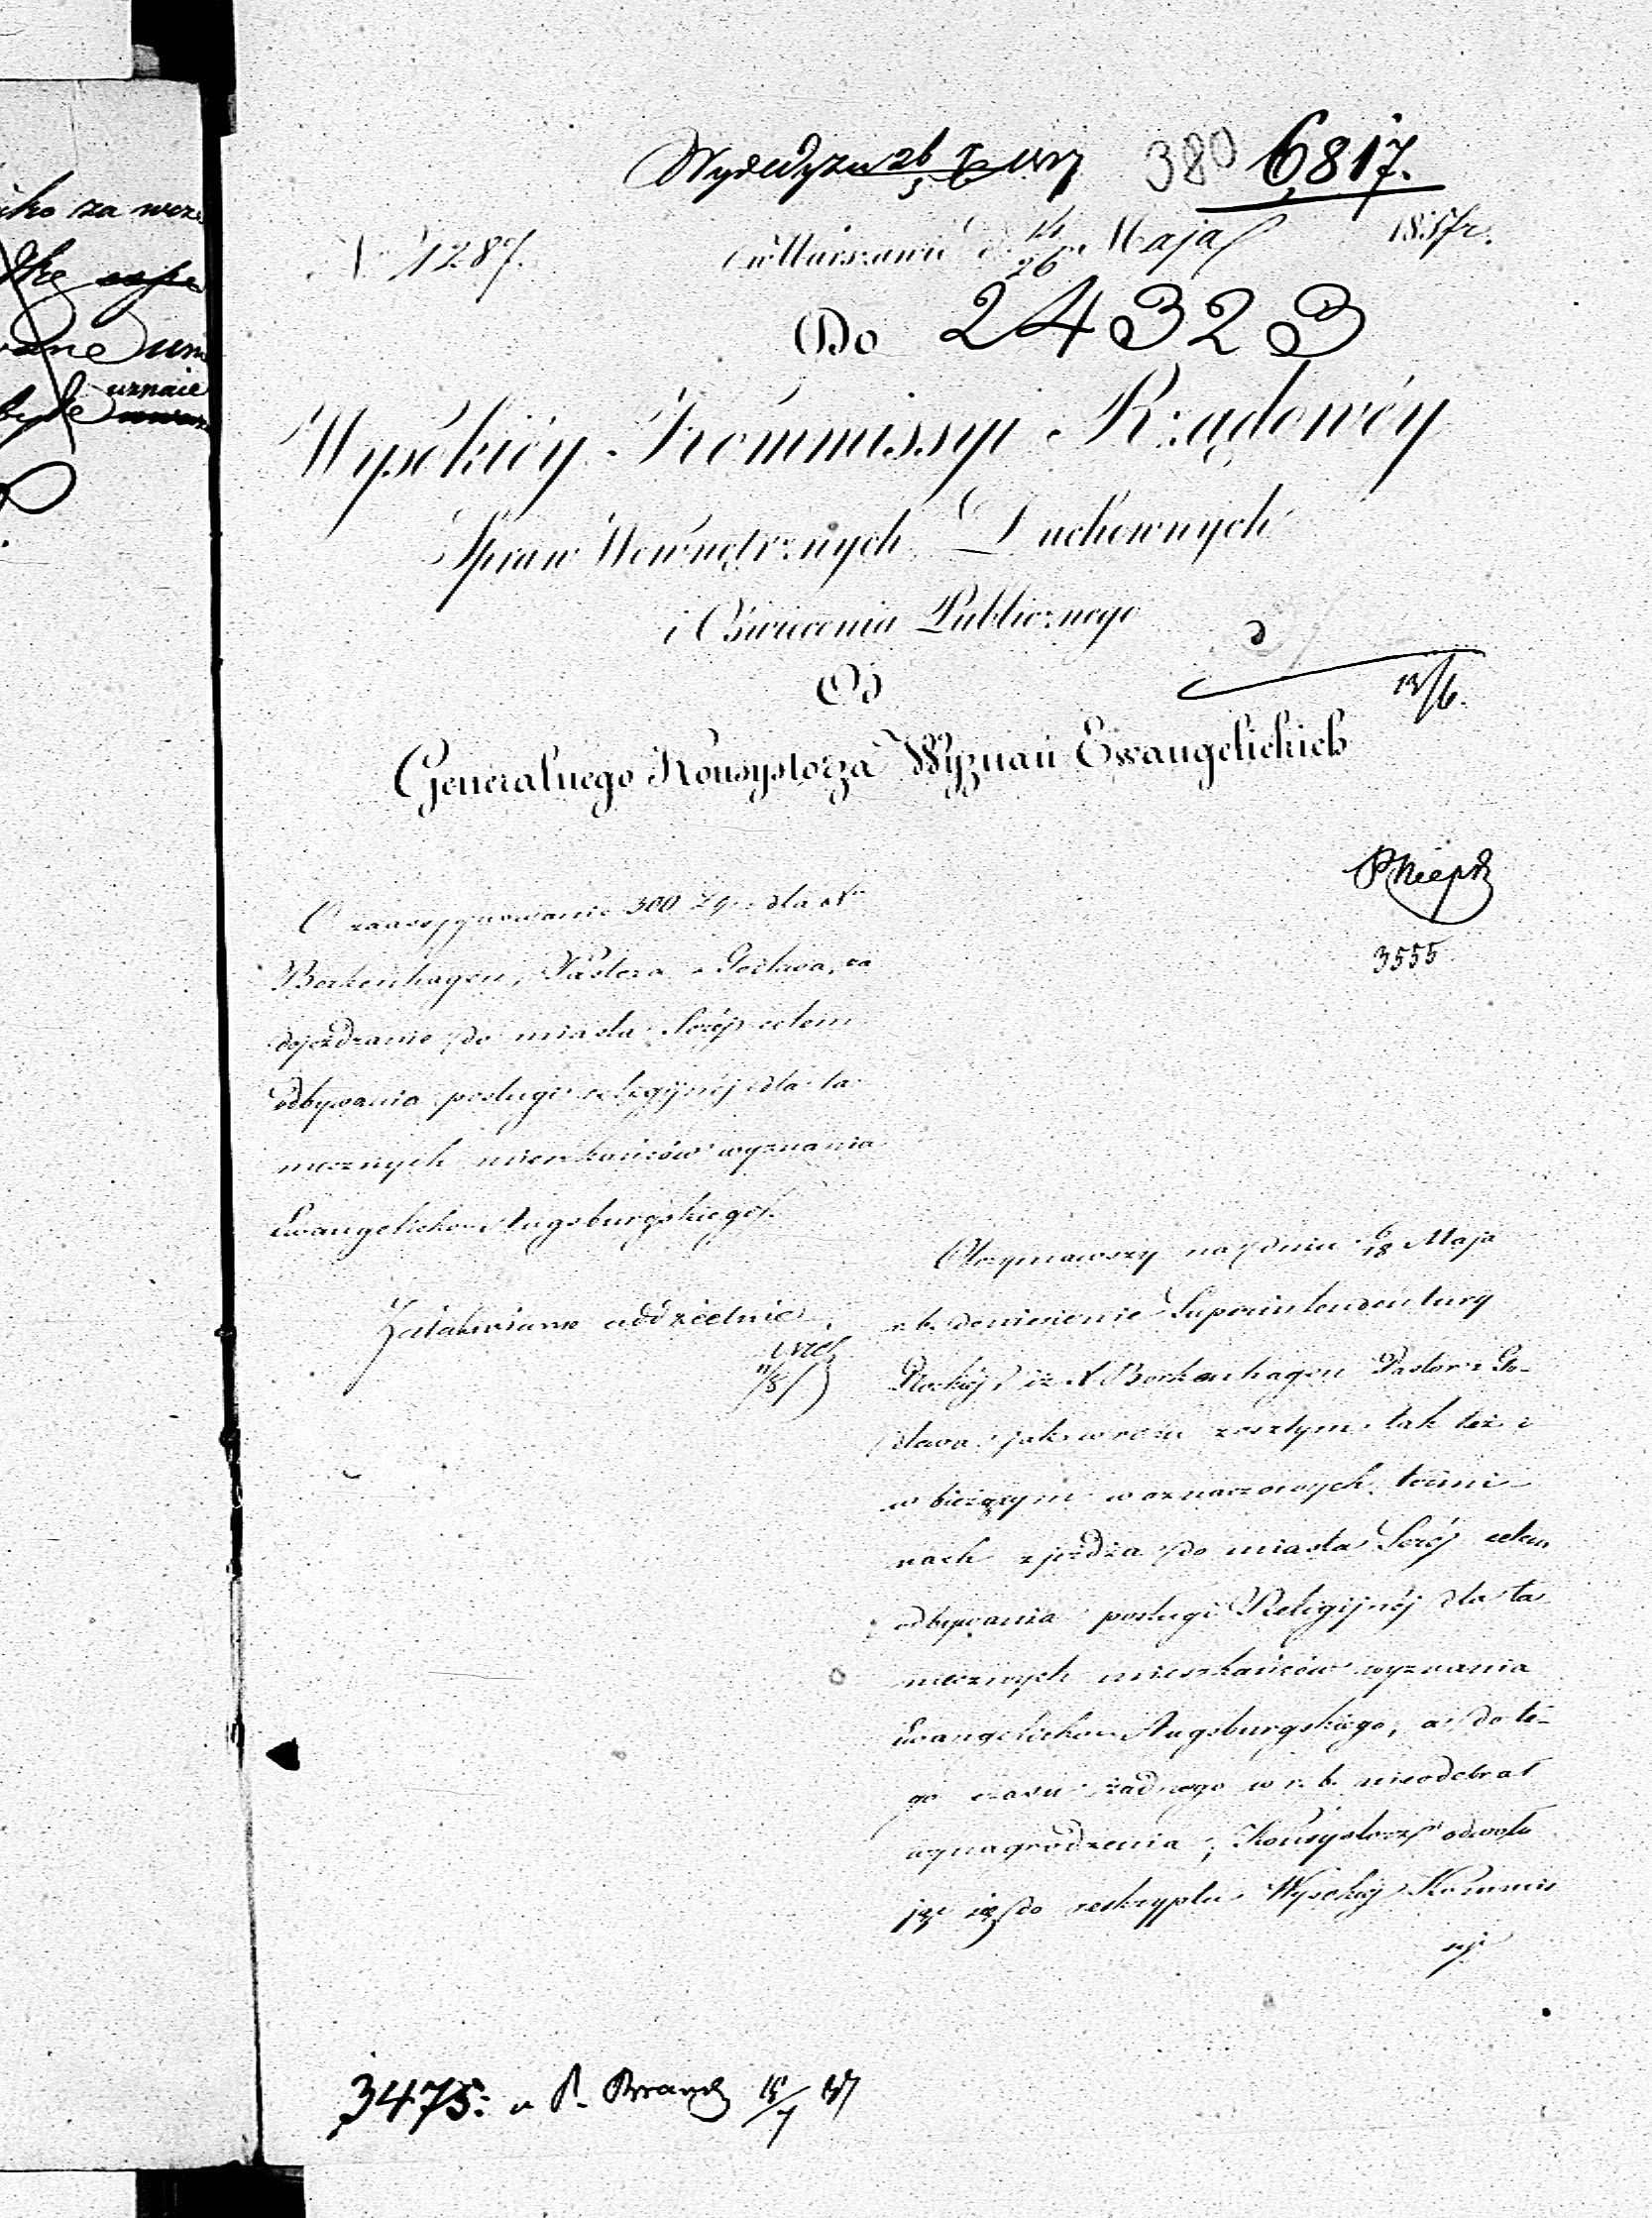 380 6817.
N 1287.
w Warszawie d. 14/26 Maja 1837 r.
Do 24323
Wysokiéy Kommissyi Rządowéy
Spraw Wewnętrznych Duchownych
i Oświecenia Publicznego
Od
13/6.
Generalnego Konsystorza Wyznań Ewangelickich
3555
O zaassygnowanie 300 Zł. dla X
Borkenhagen, Pastora z Gostawa, za
dojeżdzanie do miasta Serój celem
odbywania posługi religijnéj dla ta
mecznych mieszkańców wyznania
Ewangelicko Augsburgskiego.
Załatwiono oddzielnie
11/8
Otrzymawszy na dniu 6/18 Maja
r. b. doniesienie Superintendentury
Płockiéj iż X Borkenhagen Pastor z Go-
stawa, jak w roku zeszłym tak też i
w bieżącym w oznaczonych termi-
nach zjeżdża do miasta Serój celem
odbywania posługi Religijnéj dla ta
mecznych mieszkańców wyznania
Ewangelicko Augsburgskiego, a do té-
go czasu żadnego w r. b. nieodebrał
wynagrodzenia; Konsystorz odwołu
jąc się do reskryptu Wysokiéj Kommis
syi
iko za
uznaie
3475: P. Brandt 15/7 37